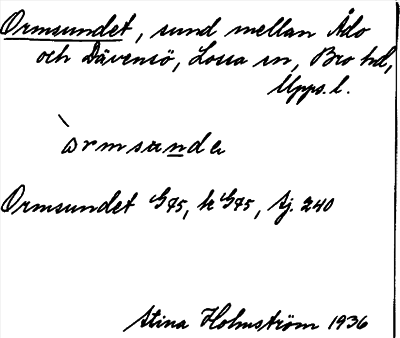 Ormsundet, sund mellan Ådö
och Dävensö, Lossa sn, Bro hd,
Upps. l.
òrmsunda
Ormsundet G45, kr G45, Sj. 240
Stina Holmström 1936